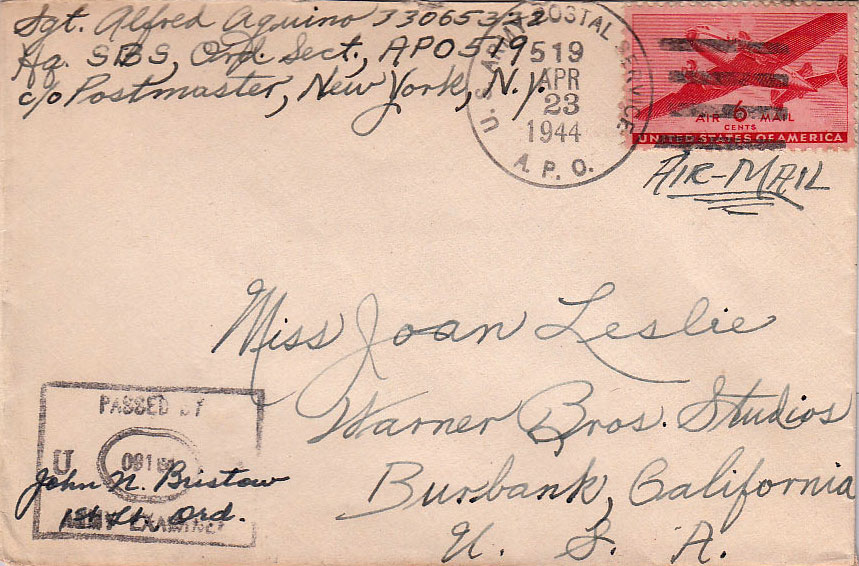 Sgt. Alfred Aquino
Hq. SBS, Ord. Sect., APO 519
c/o Postmaster, New York, N.Y.
U.S. ARMY POSTAL SERVICE
519
APR
23
1944
A.P.O.
AIR 6 MAIL
CENTS
UNITED STATES OF AMERICA
AIR-MAIL
Miss Joan Leslie
Warner Bros. Studios
Burbank, California
U. S. A.
PASSED BY
U
John N. Bristow
1st Lt. Ord.
ARMY EXAMINER